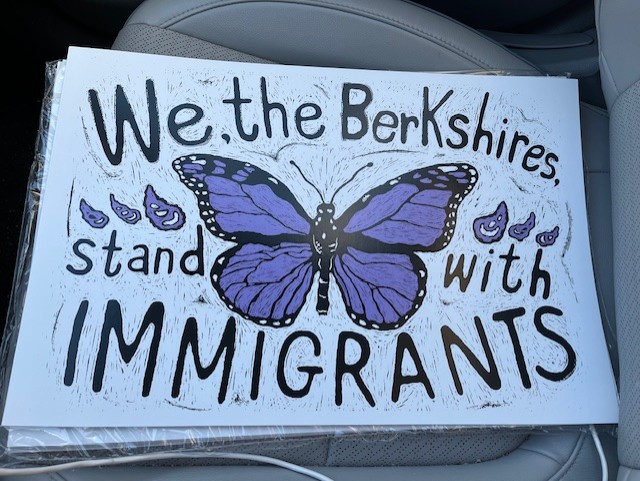 We, the Berkshires,
stand with
IMMIGRANTS